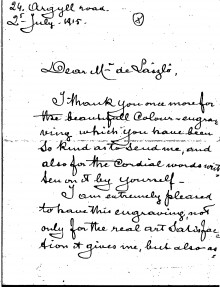 24. Argyll road.
2d July. 1915.
Dear Mr de László,
I thank you once more for
the beautifull Colour-engra-
ving which you have been
so kind as to send me, and
also for the Cordial words writ-
ten on it by yourself_
I am extremely pleased
to have this engraving, not
only for the real art satisfac-
tion it gives me, but also as